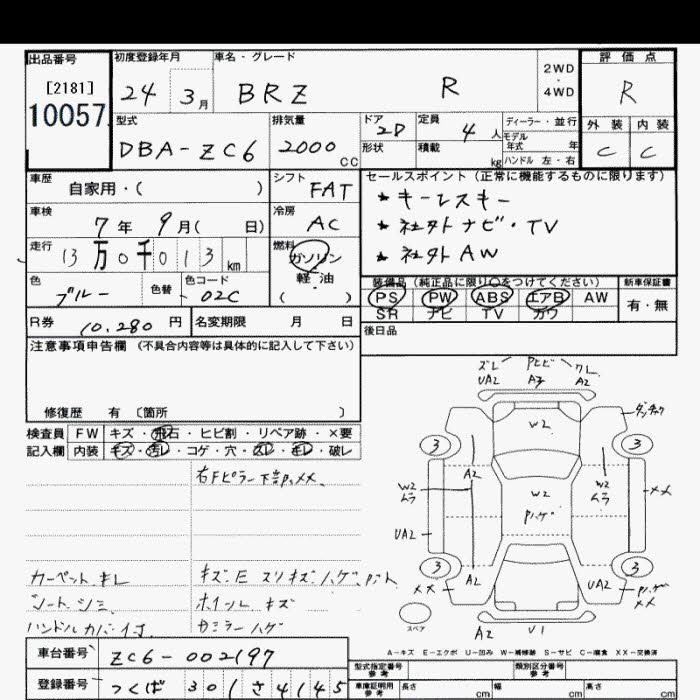 出品番号 初度登録年月 車名・グレード 2WD 評価点
[2181] 24 3月 BRZ R ・ R
10057 4WD
型式 排気量 ドア 定員 ディーラー・並行 外装 内装
DBA-ZC6 2000 CC 2D 4人 モデル年式 年 C C
形状 積載 kg ハンドル 左・右
車歴 シフト セールスポイント (正常に機能するものに限ります)
自家用・( ) FAT ★キーレスキー
車検 7年 9月( 日) 冷房 AC ★社外ナビ・TV
走行 13万0千013km 燃料 ガソリン ★社外AW
軽油
色 色替 色コード ( ) 装備品 (純正品に限り○をつけてください) 新車保証書
ブルー 02C PS PW ABS エアB AW 有・無
SR ナビ TV カワ
R券 10,280円 名変期限 月 日 後日品
注意事項申告欄 (不具合内容等は具体的に記入して下さい)
修復歴 有 〔箇所 〕
検査員 FW キズ・飛石・ヒビ割・リペア跡・×要
記入欄 内装 キズ・汚レ・コゲ・穴・スレ・キレ・破レ
右Fピラー下部××
カーペットキレ キズ・E スリキズ ハゲ
シートシミ ホイルキズ
ハンドルカバー付 カミラーハゲ
ズレ UA2
A3
ワレ A2
W2
3 3
A2
W2 ムラ W2 W2 ムラ ××
Pハゲ
UA2
3 3
×× A2 UA2 Pハゲ ××
スペア A2 U1
A-キズ E-エクボ U-凹み W-補修跡 S-サビ C-腐食 XX-交換済
車台番号 ZC6-002197
登録番号 つくば 301 さ 4145
型式指定番号 参考 類別区分番号 参考
車庫証明用 参考 長さ cm 幅 cm 高さ cm